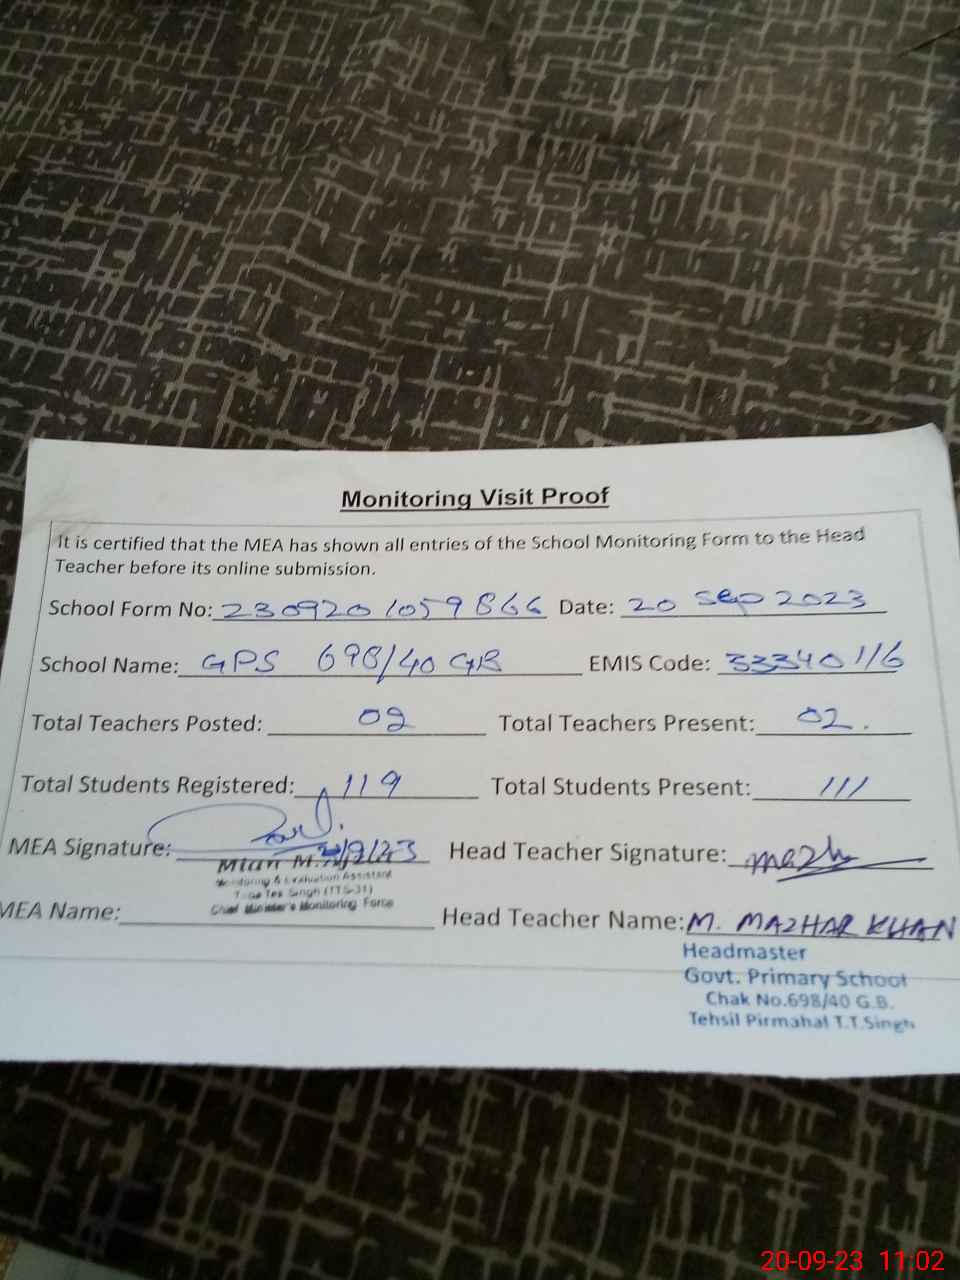 Monitoring Visit Proof
It is certified that the MEA has shown all entries of the School Monitoring Form to the Head
Teacher before its online submission.
School Form No: 2309201059866 Date: 20 Sep 2023
School Name: GPS 698/40 GB EMIS Code: 33340116
Total Teachers Posted: 02 Total Teachers Present: 02.
Total Students Registered: 119 Total Students Present: 111
MEA Signature: Head Teacher Signature: mazh
Mian M.
Monitoring & Evaluation Assistant
Toba Tek Singh (TTS-31)
Chief Minister's Monitoring Force
MEA Name: Head Teacher Name: M. MAZHAR KHAN
Headmaster
Govt. Primary School
Chak No.698/40 G.B.
Tehsil Pirmahal T.T.Singh
20-09-23 11:02